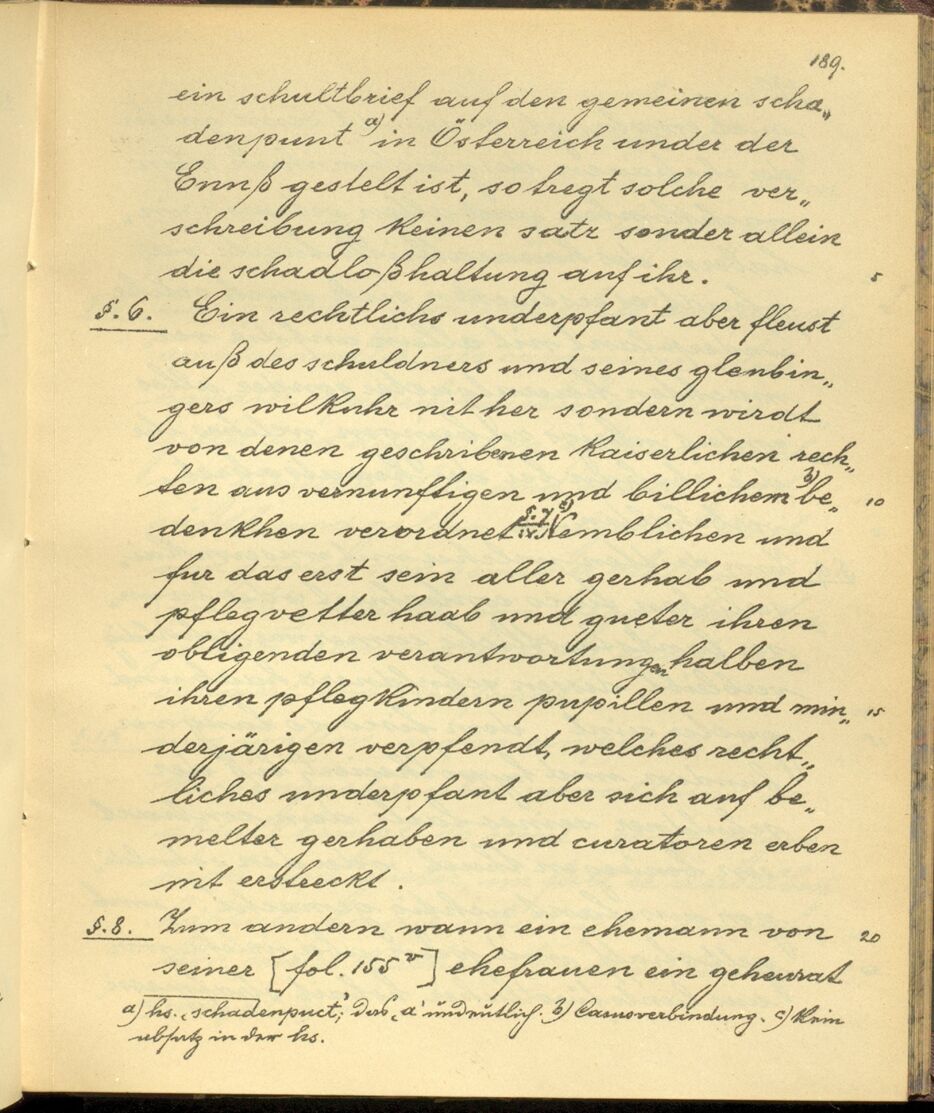 189.
ein schultbrief auf den gemeinen scha„
denpunt a) in Österreich under der
Ennß gestelt ist, so tregt solche ver„
schreibung keinen satz sonder allein
die schadloßhaltung auf ihr. 5
§. 6. Ein rechtlichs underpfant aber fleust
auß des schuldners und seines glaubin„
gers wilkuhr nit her sondern wirdt
von denen geschribenen kaiserlichen rech„
ten aus vernunftigen und billichem b) be„ 10
denkhen verordnet §. 7 c) Nemblichen und
fur das erst sein aller gerhab und
pflegvetter haab und gueter ihren
obligenden verantwortungen halben
ihren pflegkindern pupillen und min„ 15
derjärigen verpfendt, welches recht„
liches underpfant aber sich auf be„
melter gerhaben und curatoren erben
nit erstreckt.
§. 8. Zum andern wann ein ehemann von 20
seiner [fol. 155v] ehefrauen ein geheurat
a) hs. ‚schadenpuct‘; das ‚a‘ undeutlich. b) Casusverbindung. c) Kein
absatz in der hs.